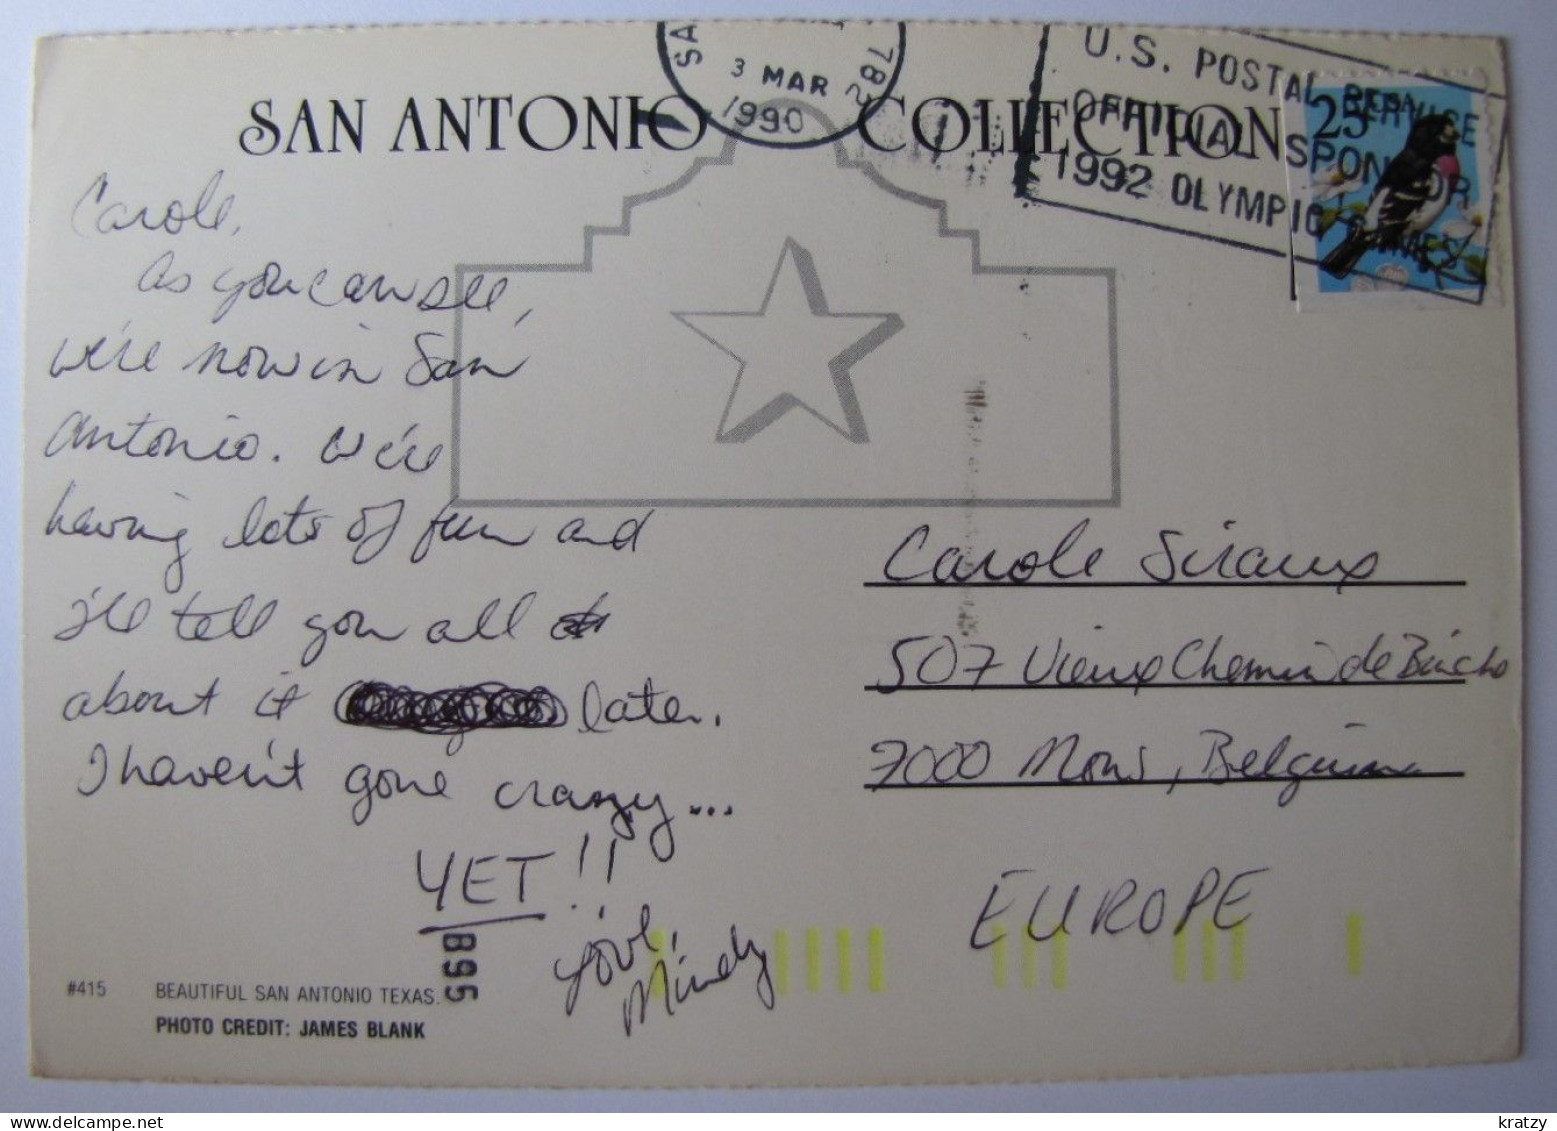 SAN ANTONIO COLLECTION
SA
3 MAR
1990
782
U.S. POSTAL SERVICE
OFFICIAL SPONSOR
1992 OLYMPIC GAMES
25
USA
Carole,
As you can see,
we're now in San
Antonio. We're
having lots of fun and
I'll tell you all
about it later.
I haven't gone crazy...
YET!!
Love,
Mindy
Carole Siraux
507 Vieux Chemin de Binche
7000 Mons, Belgium
EUROPE
B95
#415 BEAUTIFUL SAN ANTONIO TEXAS.
PHOTO CREDIT: JAMES BLANK
www.delcampe.net
kratzy